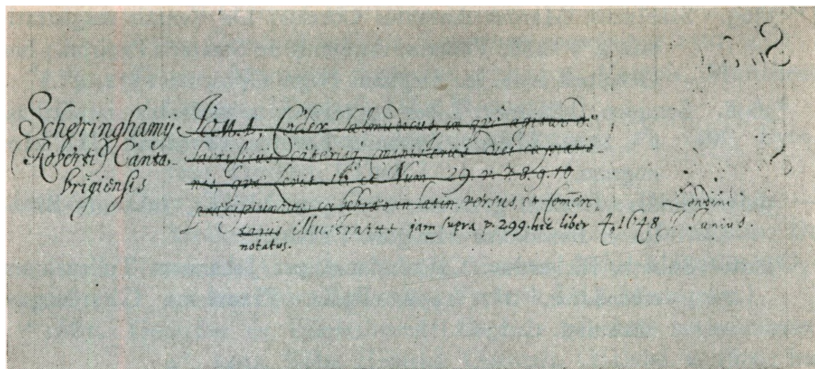 Scheringhamij
(Roberti) Canta.
brigiensis
Joma. Codex Talmudicus, in quo agitur de
sacrificiis, cæterisq ministeriis diei expiatio
nis, quæ Levit. 16. et Num. 29. v. 7. 8. 9. 10
præcipiuntur, ex hebræo in latin. versus, et commen
tariis illustratus jam supra p. 299. hic liber
notatus.
Londini
4. 1648 J. Junius.